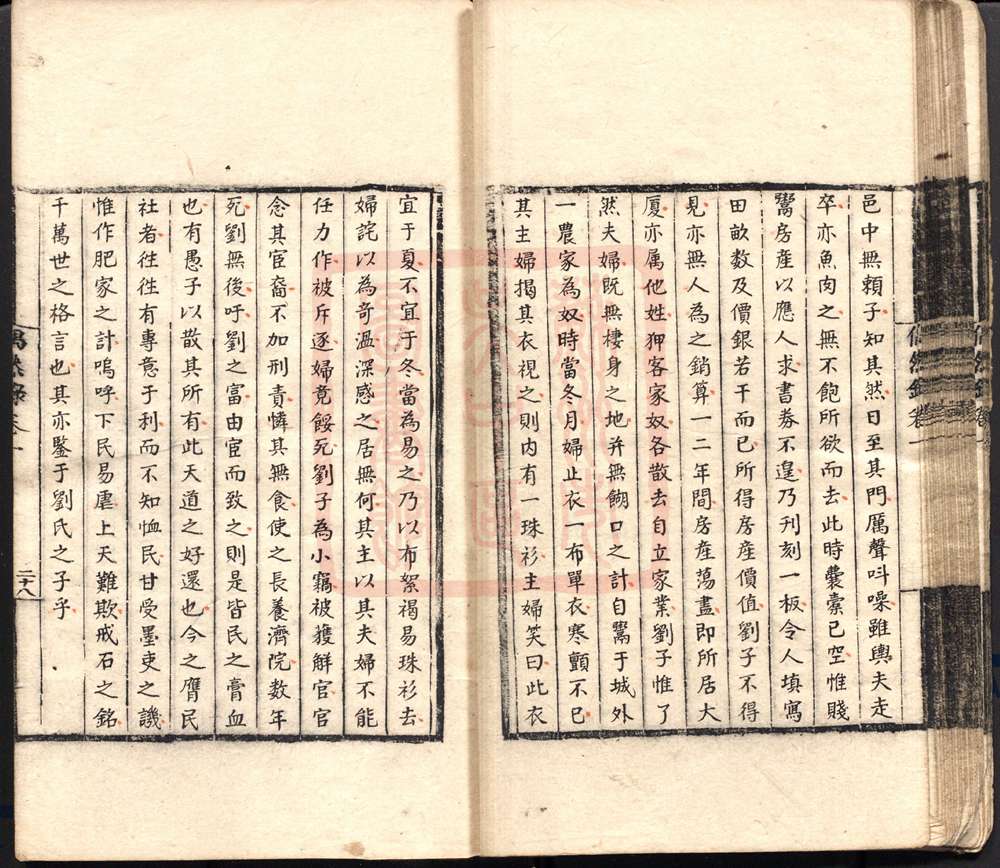 邑中無賴子知其然日至其門厲聲呌噪雖輿夫走
卒亦魚肉之無不飽所欲而去此時囊槖已空惟賤
鬻房產以應人求書券不遑乃刊刻一板令人填寫
田畝数及價銀若干而已所得房產價值劉子不得
見亦無人為之銷算一二年間房產蕩盡即所居大
厦亦属他姓狎客家奴各散去自立家業劉子惟了
然夫婦既無棲身之地并無餬口之計自鬻于城外
一農家為奴時當冬月婦止衣一布單衣寒顫不已
其主婦揭其衣視之則内有一珠衫主婦笑曰此衣
宜于夏不宜于冬當為易之乃以布絮褐易珠衫去
婦詫以為奇溫深感之居無何其主以其夫婦不能
任力作被斥逐婦竟餒死劉子為小竊被獲觧官官
念其宦裔不加刑責憐其無食使之長養濟院数年
死劉無後吁劉之富由宦而致之則是皆民之膏血
也有愚子以散其所有此天道之好還也今之膺民
社者徃徃有專意于利而不知恤民甘受墨吏之譏
惟作肥家之計嗚呼下民易虐上天難欺戒石之銘
千萬世之格言也其亦鑒于劉氏之子乎
偶然錄 卷一
二十八